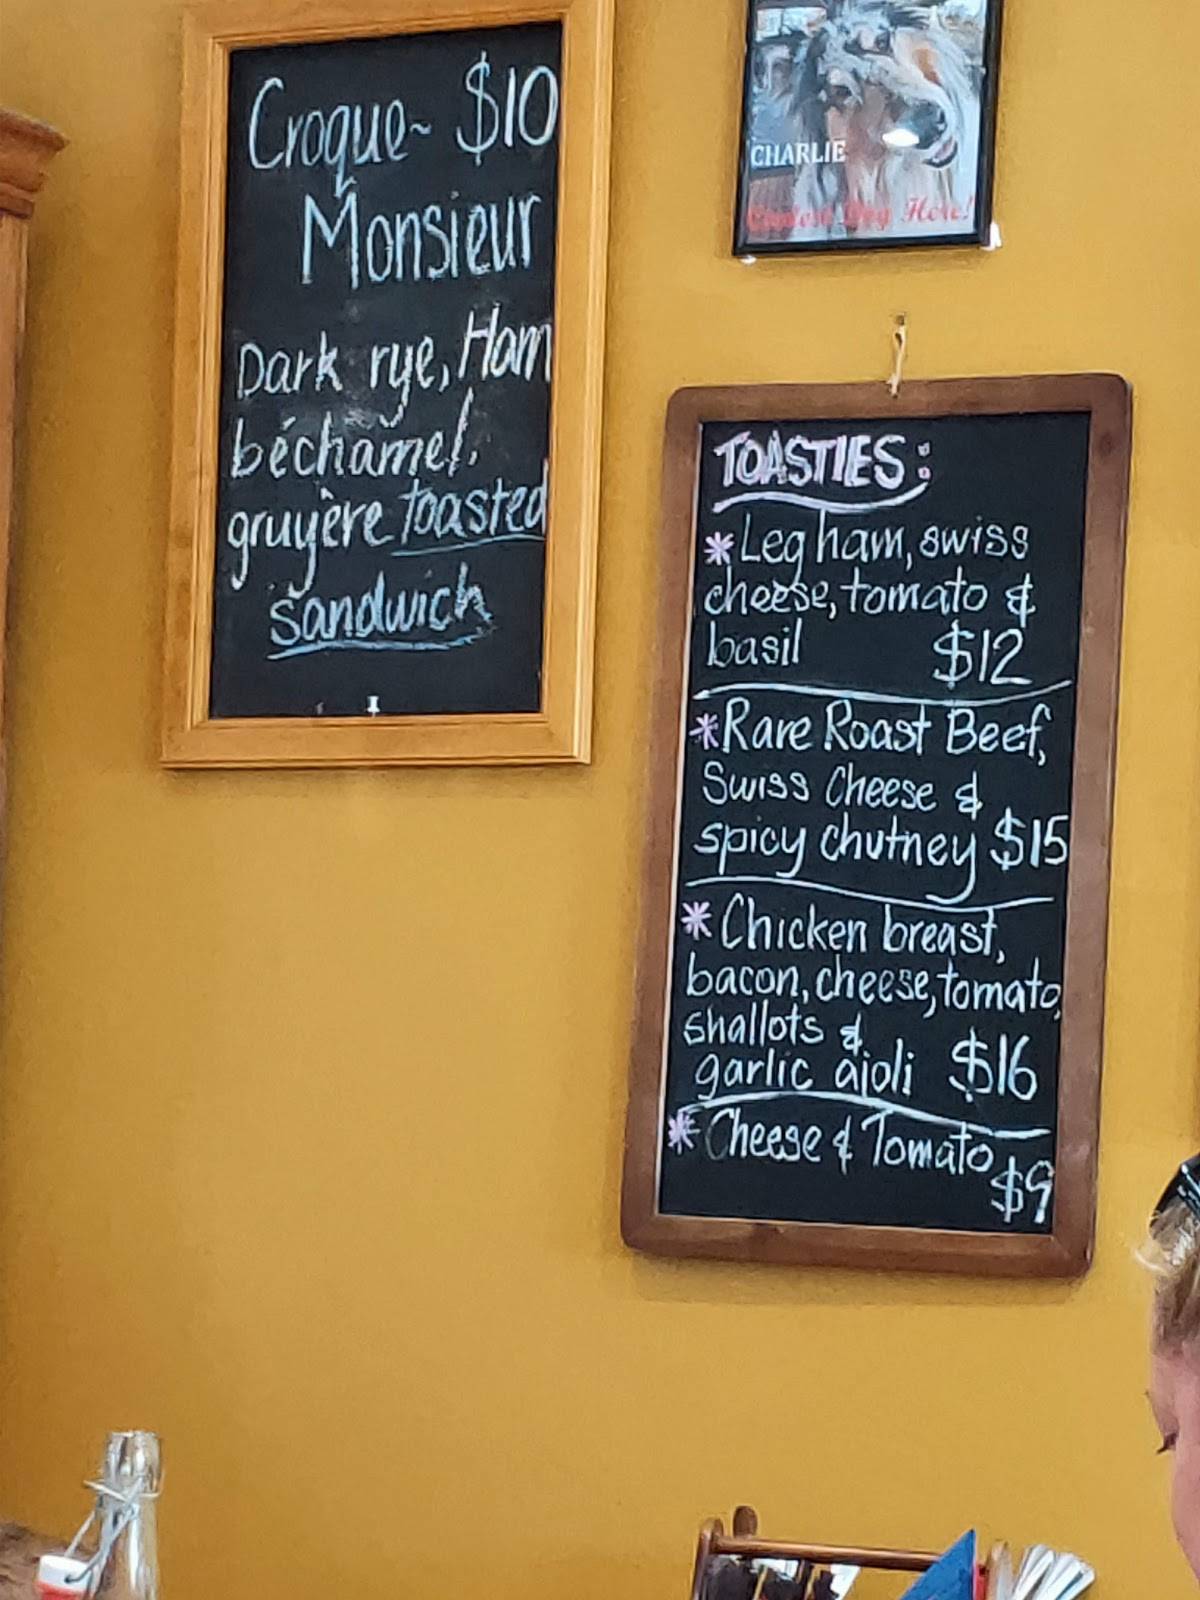 Croque~ $10
Monsieur
Dark rye, Ham
béchamel,
gruyère toasted
sandwich
CHARLIE
Here!
TOASTIES:
*Leg ham, swiss
cheese, tomato &
basil $12
*Rare Roast Beef,
Swiss Cheese &
spicy chutney $15
*Chicken breast,
bacon, cheese, tomato,
shallots &
garlic aioli $16
*Cheese & Tomato
$9